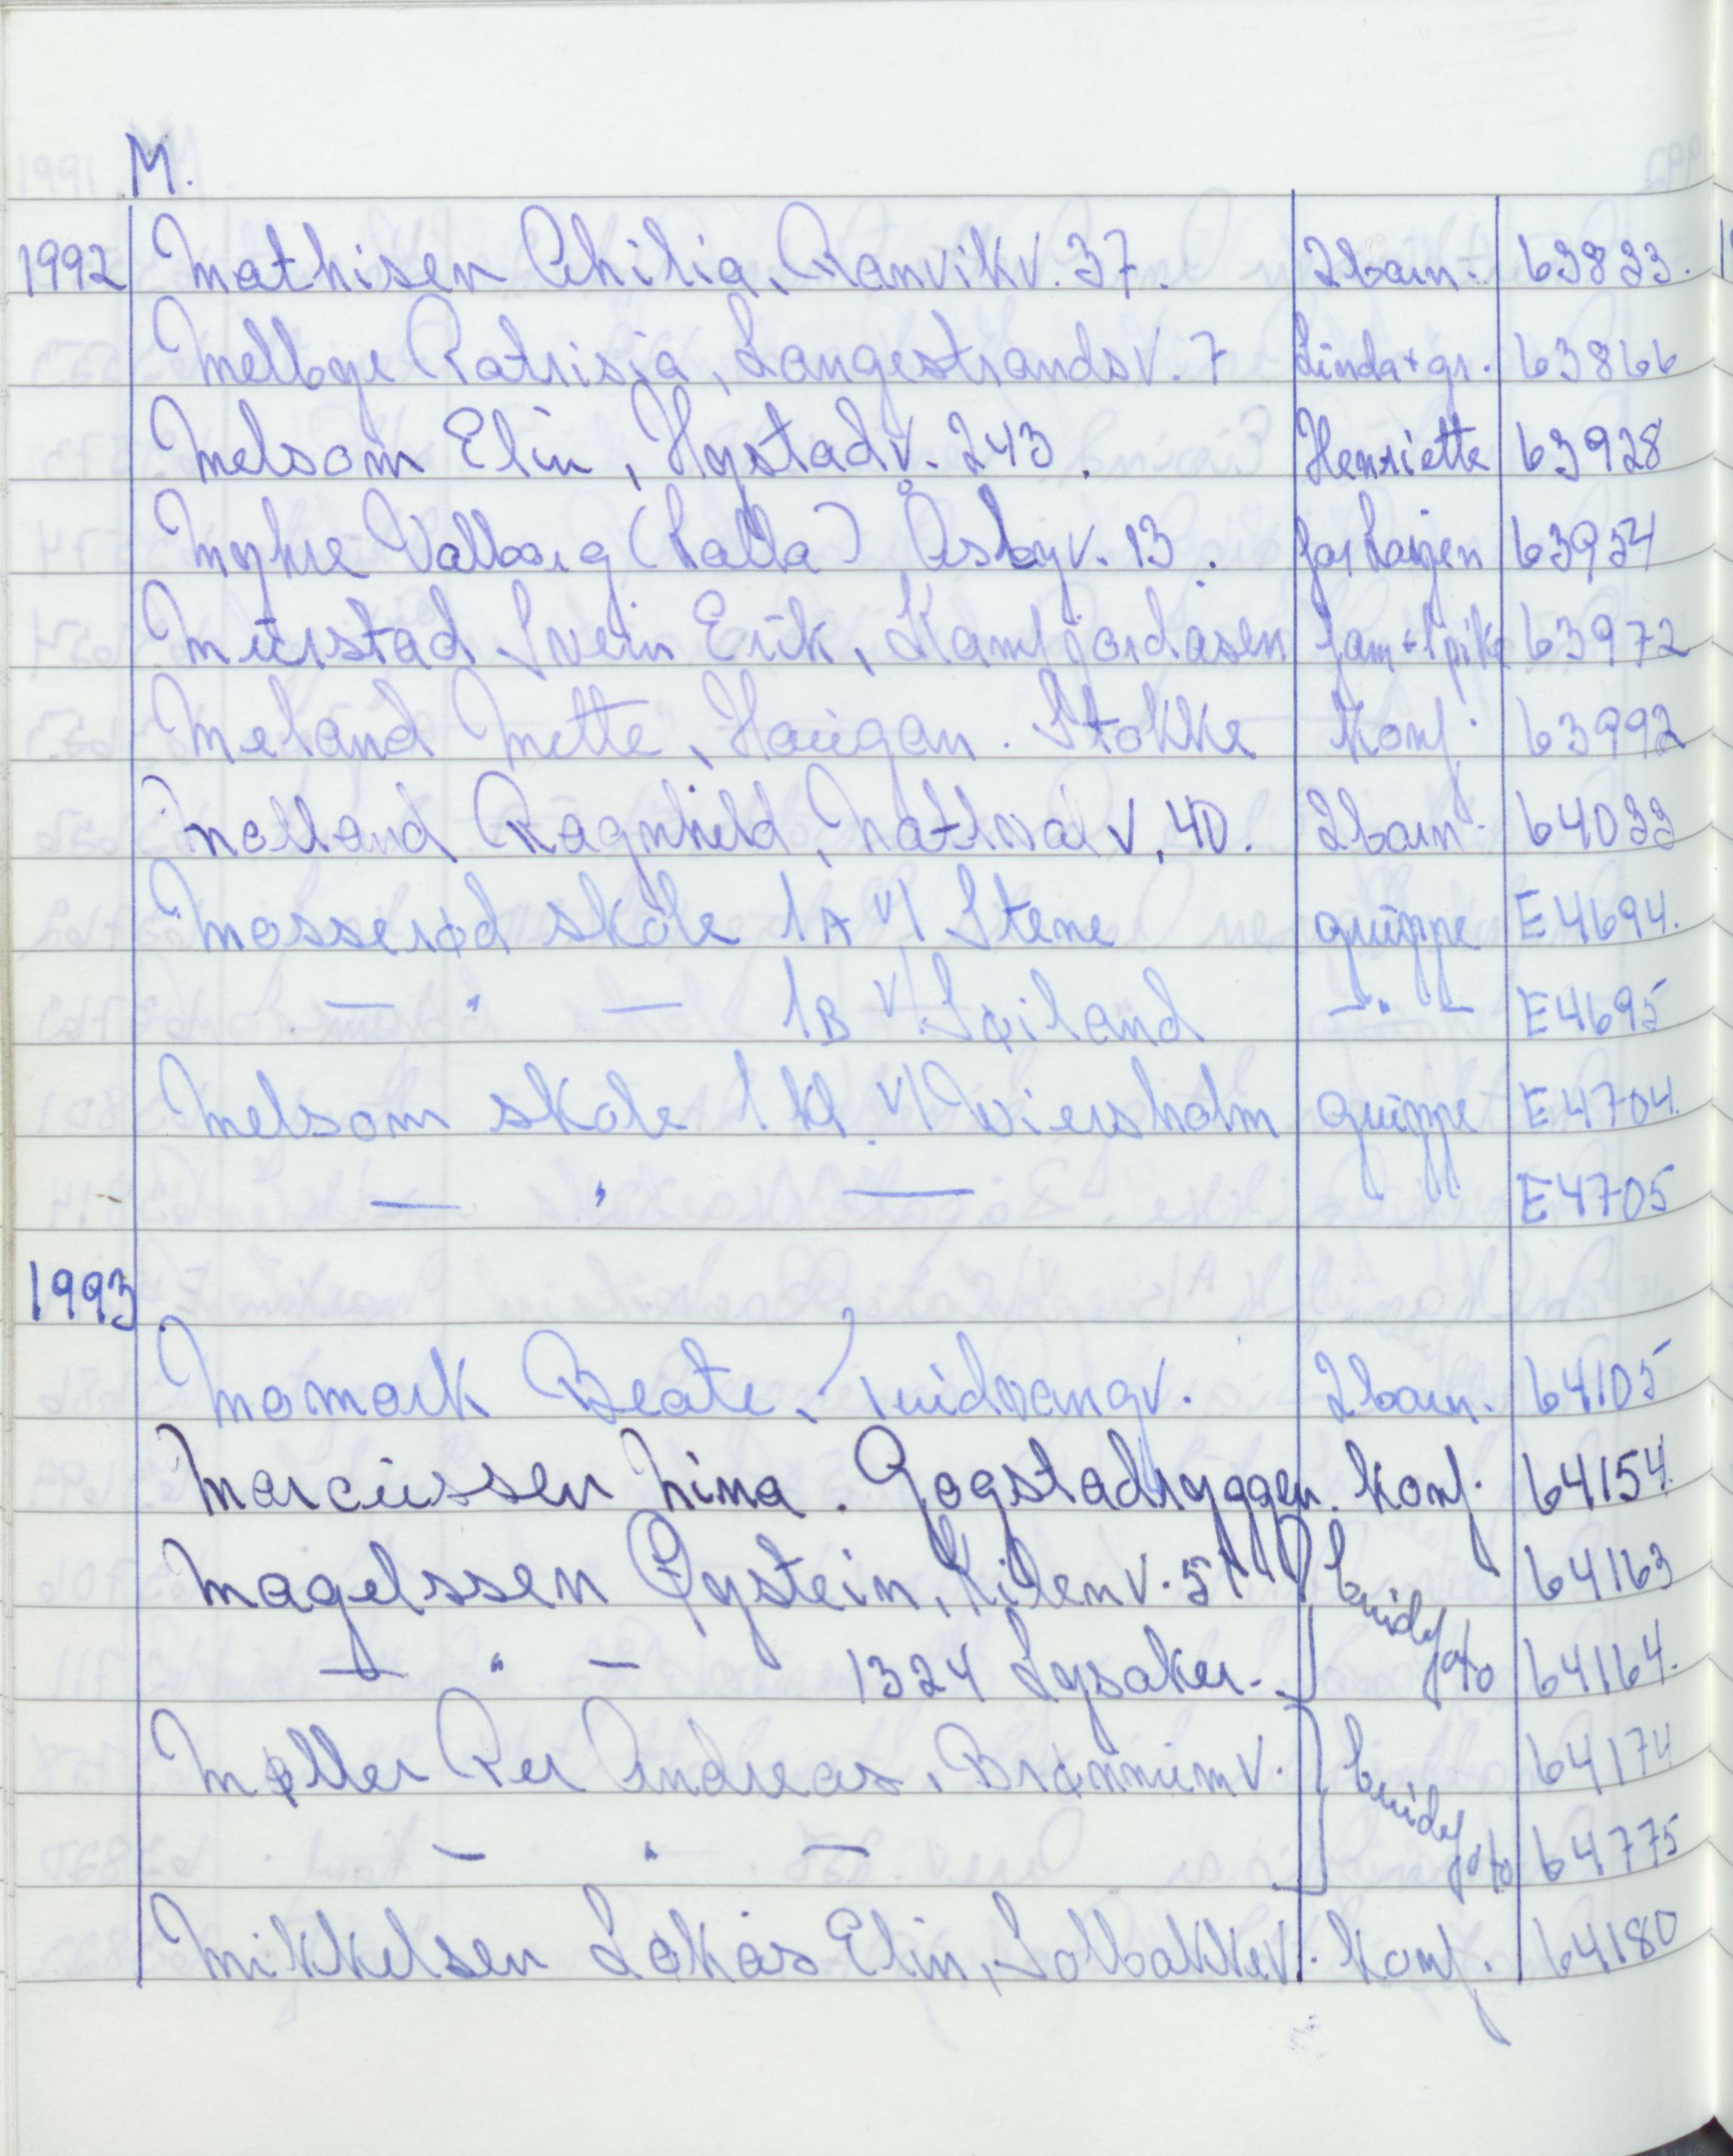 M.
1992 Mathisen Ahilia, Ranvikv. 37. 2 barn. 63833.
Melbye Patrisia, Langestrandsv. 7 Linda + gr. 63866
Melsom Elin, Hystadv. 243. Henriette 63928
Myhre Valborg (Lalla) Åsbyv. 13. 63954
Murstad Svein Erik, Kamfjordåsen fam + 1 pike 63972
Meland Mette, Haugan. Stokke Konf. 63992
Molland Ragnhild, Nattvalv. 40. 2 barn. 64033
Mosserød skole 1A v/ Stene gruppe E4694.
— " — 1B v/ Søiland — " — E4695
Melsom skole 1 kl. v/ Wiersholm gruppe E4704.
— " — E4705
1993
Momark Beate, Midvangv. 2 barn. 64105
Marcussen Nina. Gogstadryggen. konf. 64154.
Magelssen Øystein, Lilenv. 51 brudefoto 64163
— " — 1324 Lysaker. 64164.
Møller Per Andreas, Brønnumv. brudefoto 64174
— " — 64775
Mikkelsen Løkås Elin, Solbakkev. konf. 64180